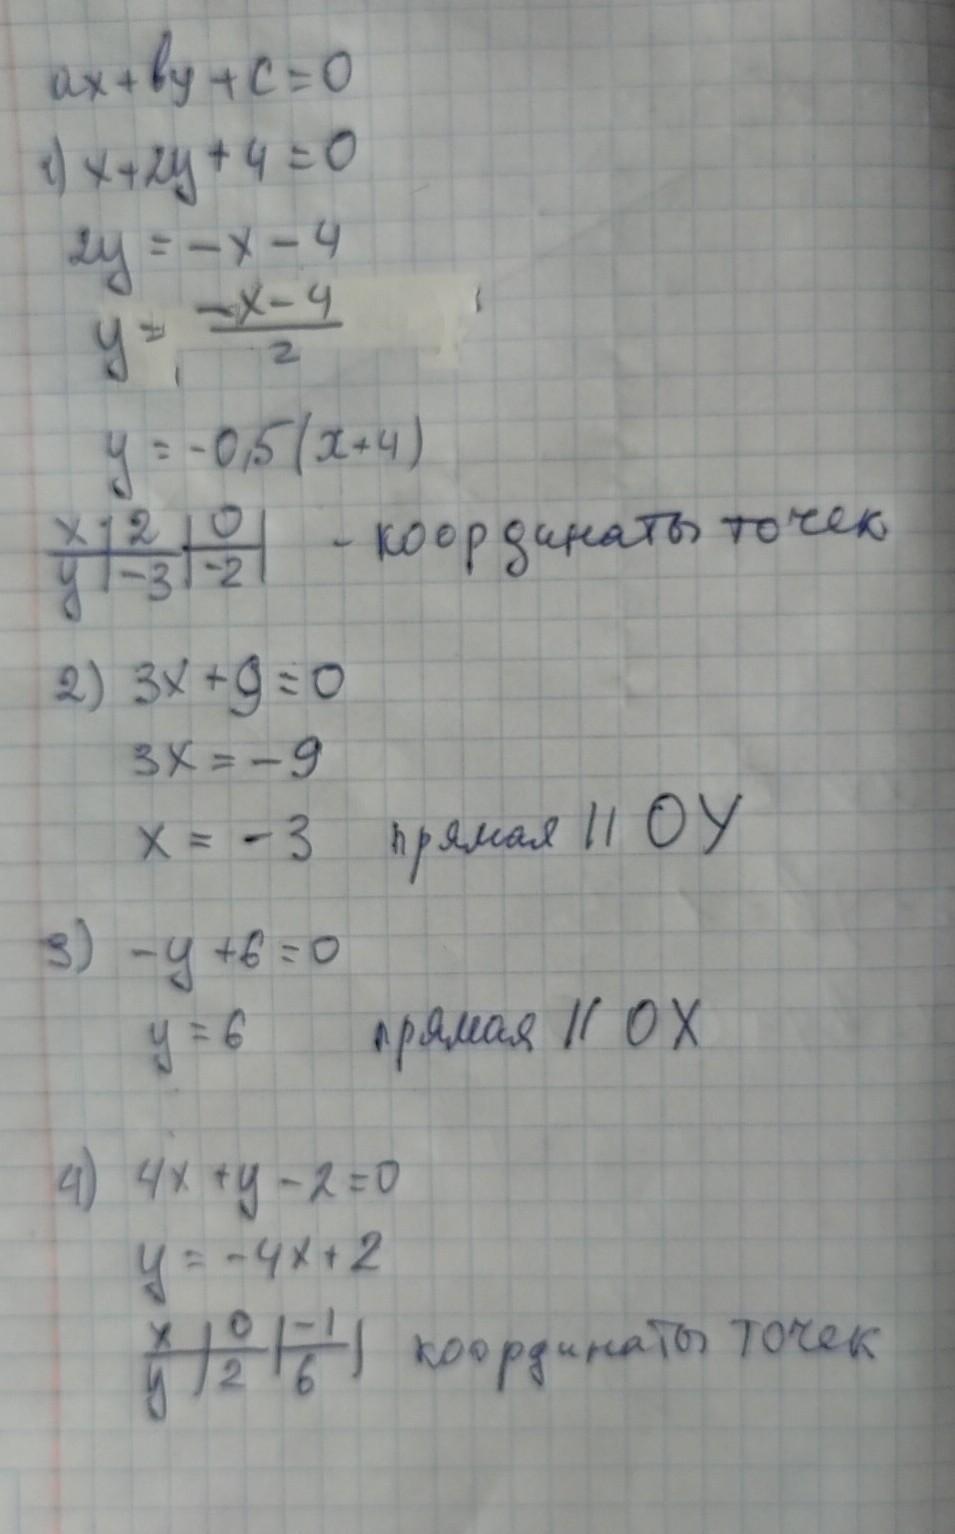 ax+by+c=0
1) x+2y+4=0
2y=-x-4
y= -x-4
2
y=-0,5(x+4)
x | 2 | 0 | - координаты точек
y | -3 | -2 |
2) 3x+9=0
3x=-9
x=-3 прямая || OY
3) -y+6=0
y=6 прямая || OX
4) 4x+y-2=0
y=-4x+2
x | 0 | -1 | координаты точек
y | 2 | 6 |